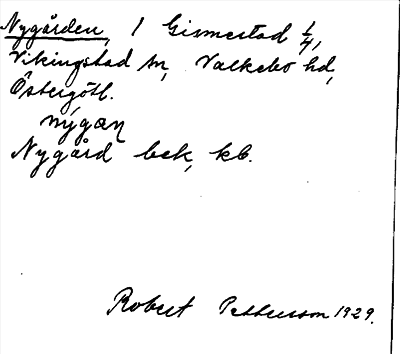 Nygården, 1 Gismestad 1/4,
Vikingstad sn, Valkebo hd,
Östergötl.
nýgan
Nygård bek, kb.
Robert Pettersson 1929.